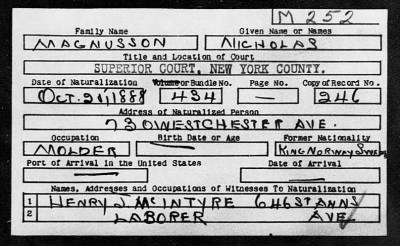 M 252
Family Name Given Name or Names
MAGNUSSON NICHOLAS
Title and Location of Court
SUPERIOR COURT, NEW YORK COUNTY.
Date of Naturalization Volume or Bundle No. Page No. Copy of Record No.
Oct. 21, 1888 434 — 246
Address of Naturalized Person
730 WESTCHESTER AVE.
Occupation Birth Date or Age Former Nationality
MOLDER — KING NORWAY SWED
Port of Arrival in the United States Date of Arrival
— —
Names, Addresses and Occupations of Witnesses To Naturalization
1 HENRY J. MCINTYRE 646 ST ANNS
2 LABORER AVE.